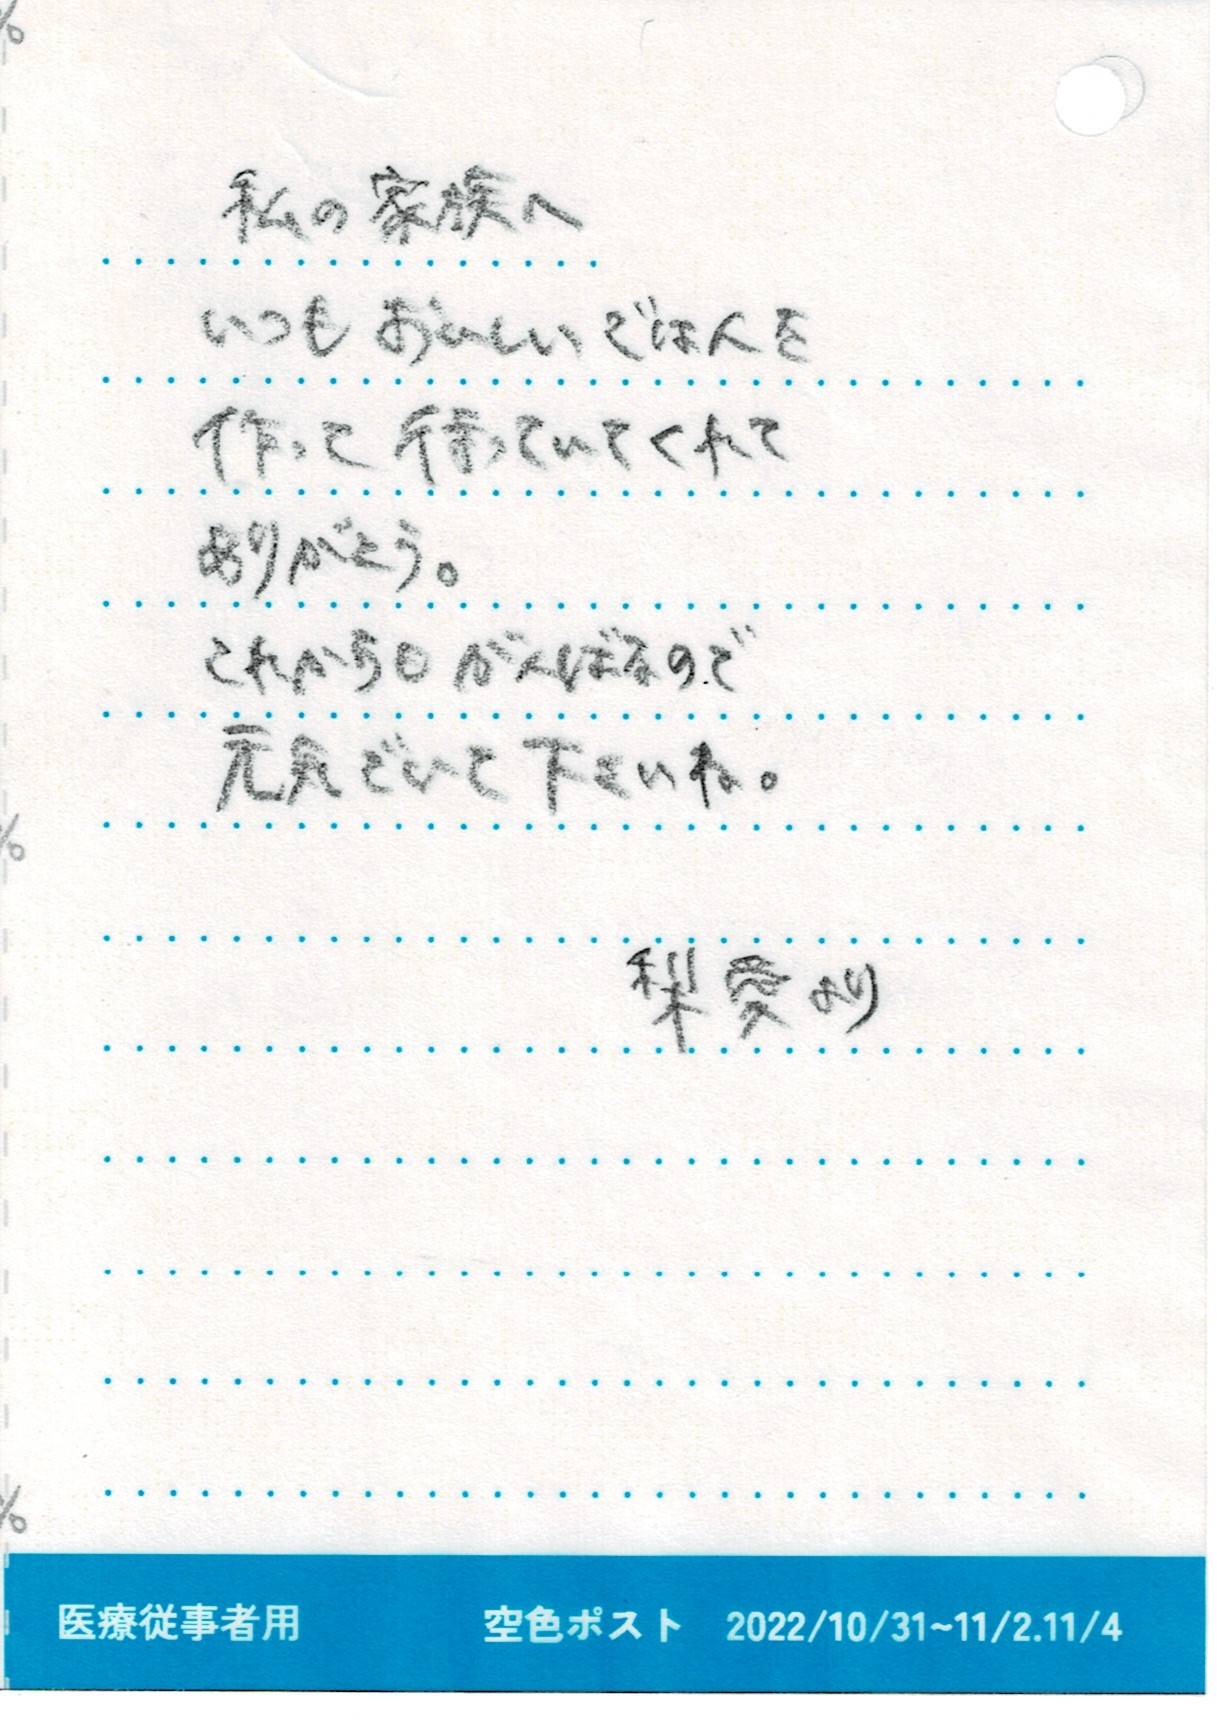 私の家族へ
いつもおいしいごはんを
作って待っていてくれて
ありがとう。
これからもがんばるので
元気でいて下さいね。
梨愛より
医療従事者用 空色ポスト 2022/10/31~11/2.11/4